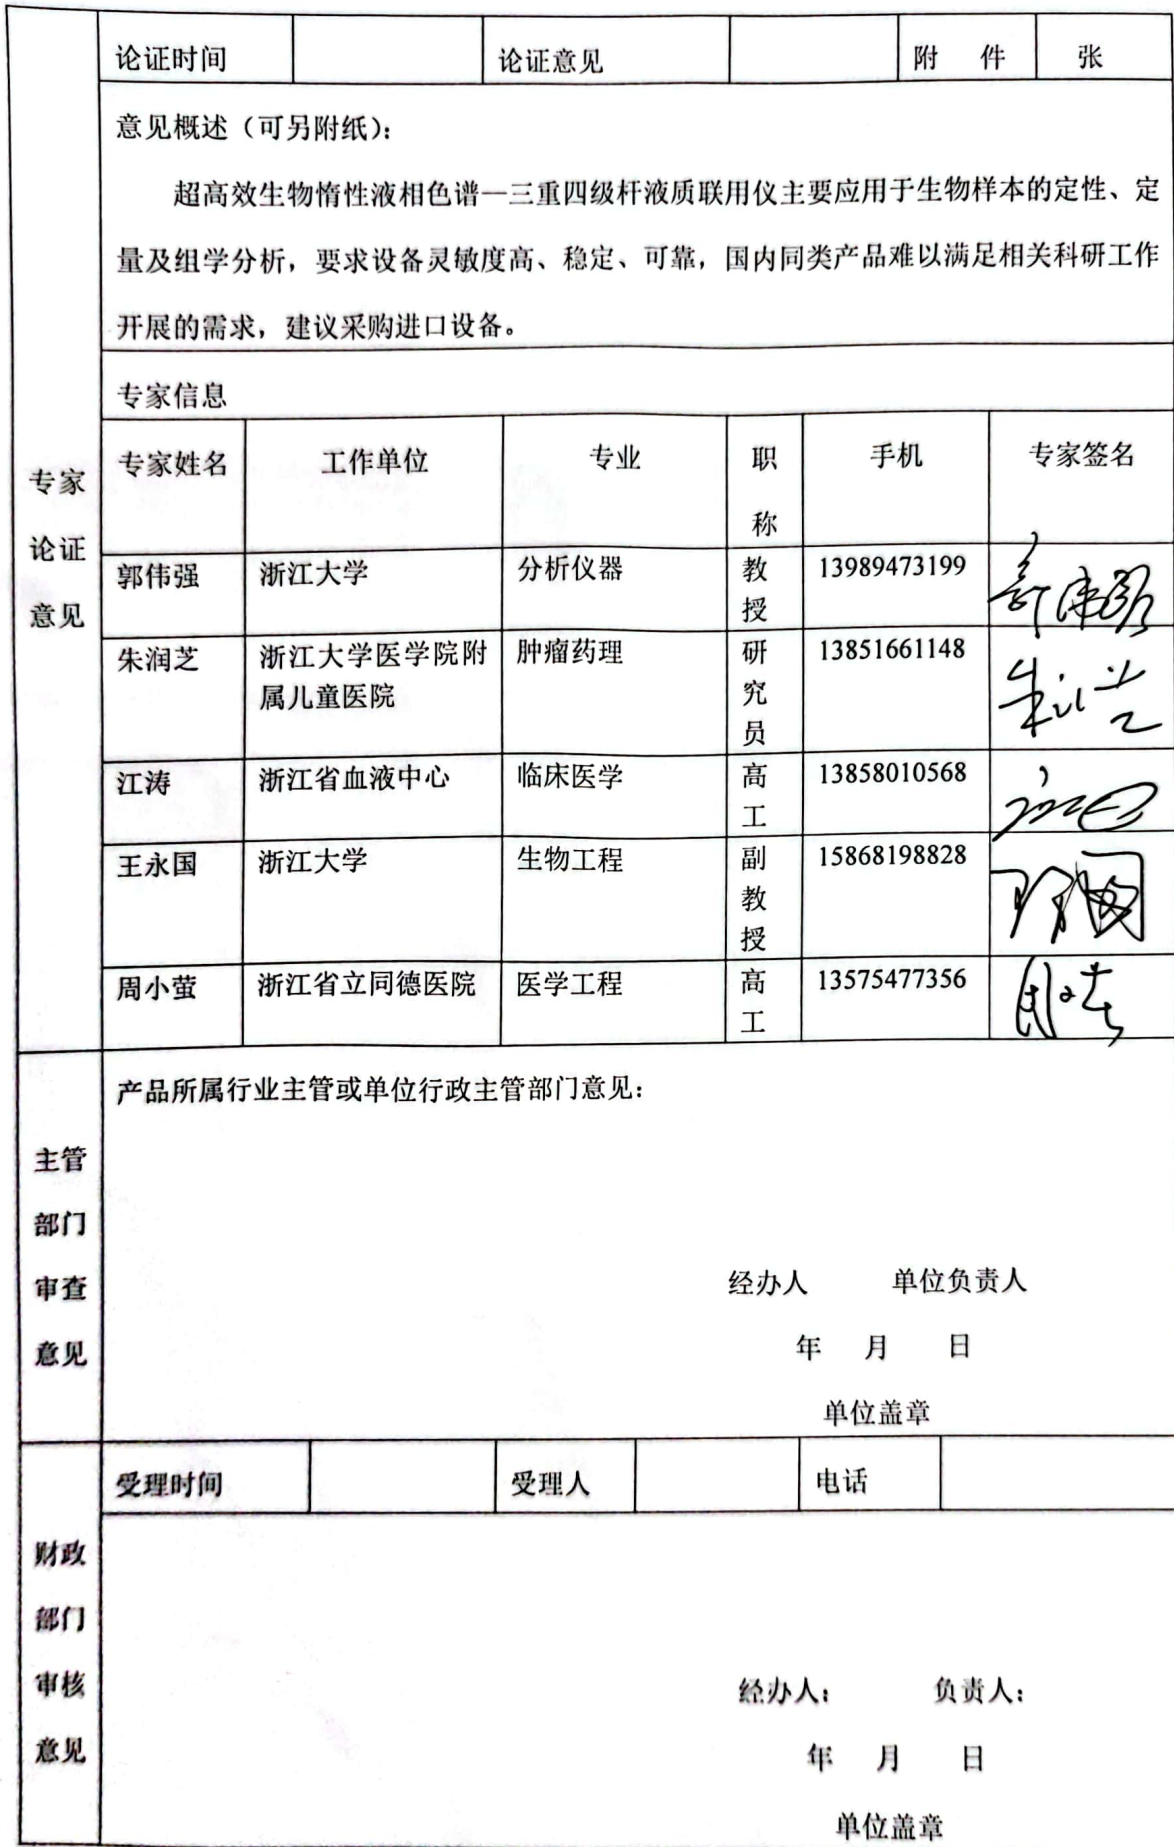 论证时间 论证意见 附 件 张
意见概述（可另附纸）：
超高效生物惰性液相色谱—三重四级杆液质联用仪主要应用于生物样本的定性、定
量及组学分析，要求设备灵敏度高、稳定、可靠，国内同类产品难以满足相关科研工作
开展的需求，建议采购进口设备。
专家信息
专家
论证
意见
专家姓名 工作单位 专业 职 手机 专家签名
称
郭伟强 浙江大学 分析仪器 教 13989473199 郭伟强
授
朱润芝 浙江大学医学院附 肿瘤药理 研 13851661148 朱润芝
属儿童医院 究
员
江涛 浙江省血液中心 临床医学 高 13858010568
工
王永国 浙江大学 生物工程 副 15868198828 王永国
教
授
周小萤 浙江省立同德医院 医学工程 高 13575477356
工
主管
部门
审查
意见
产品所属行业主管或单位行政主管部门意见：
经办人 单位负责人
年 月 日
单位盖章
财政
部门
审核
意见
受理时间 受理人 电话
经办人： 负责人：
年 月 日
单位盖章